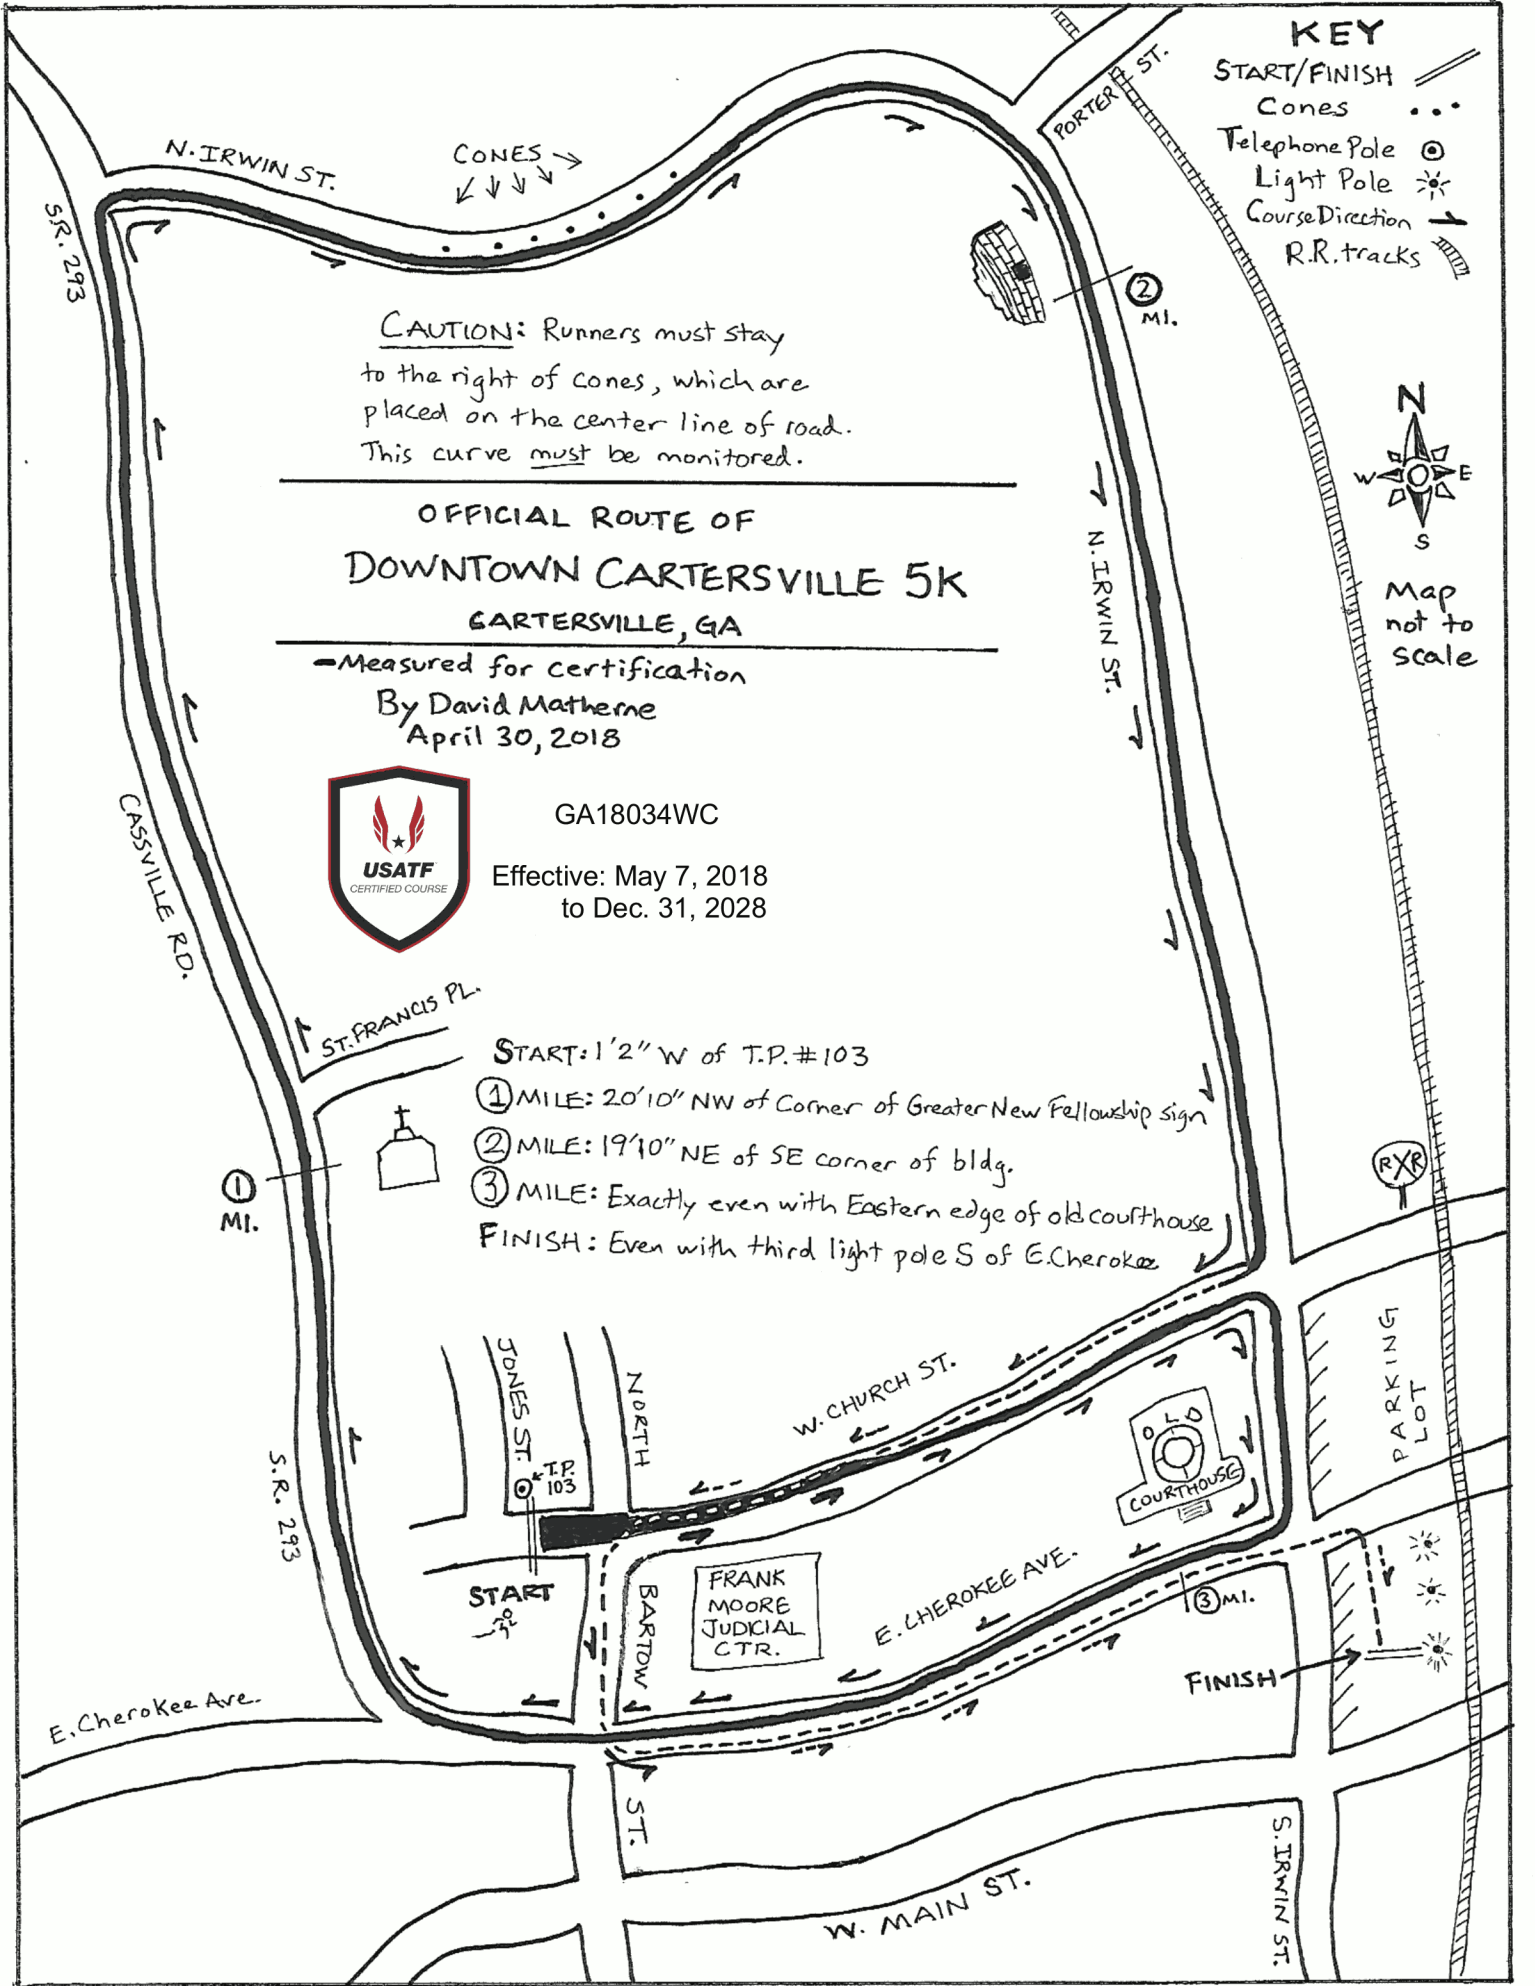 KEY
START/FINISH
Cones
Telephone Pole
Light Pole
Course Direction
R.R. tracks
PORTER ST.
N. IRWIN ST.
CONES
S.R. 293
2
MI.
CAUTION: Runners must stay
to the right of cones, which are
placed on the center line of road.
This curve must be monitored.
N
W E
S
Map
not to
scale
OFFICIAL ROUTE OF
DOWNTOWN CARTERSVILLE 5K
CARTERSVILLE, GA
-Measured for certification
By David Matherne
April 30, 2018
N. IRWIN ST.
USATF
CERTIFIED COURSE
GA18034WC
Effective: May 7, 2018
to Dec. 31, 2028
CASSVILLE RD.
ST. FRANCIS PL.
START: 1'2" W of T.P. #103
1 MILE: 20'10" NW of Corner of Greater New Fellowship sign
2 MILE: 19'10" NE of SE corner of bldg.
3 MILE: Exactly even with Eastern edge of old courthouse
FINISH: Even with third light pole S of E. Cherokee
1
MI.
RXR
JONES ST.
NORTH
W. CHURCH ST.
PARKING
LOT
T.P.
103
OLD
COURTHOUSE
S.R. 293
START
BARTON
FRANK
MOORE
JUDICIAL
CTR.
E. CHEROKEE AVE.
3 MI.
FINISH
E. Cherokee Ave.
ST.
W. MAIN ST.
S. IRWIN ST.